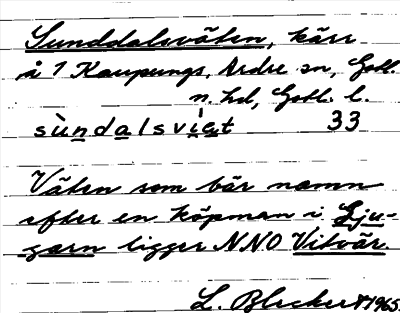 Sunddalsväten, kärr
å 1 Kaupungs, Ardre sn, Gotl.
n. hd, Gotl. l.
sùndalsviat 33
Väten som bär namn
efter en köpman i Lju-
garn ligger NNO Vitvär.
L. Blecker 1965.